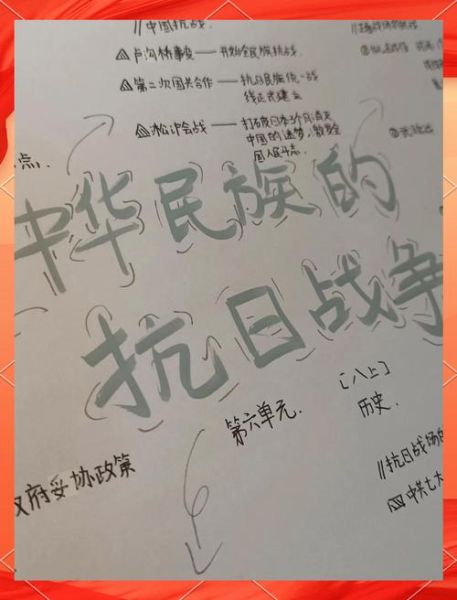 // 中国抗战.
卢沟桥事变——开始全民族抗战.
第二次国共合作——抗日民族统一战
线正式建立
淞沪会战——打破日本3个月消灭
中国的迷梦,
国人斗志.
点.
中华民族的
抗日战争
第六单元.
[八上]
历史.
政府妥协政策
// 抗日战场的
中共七大